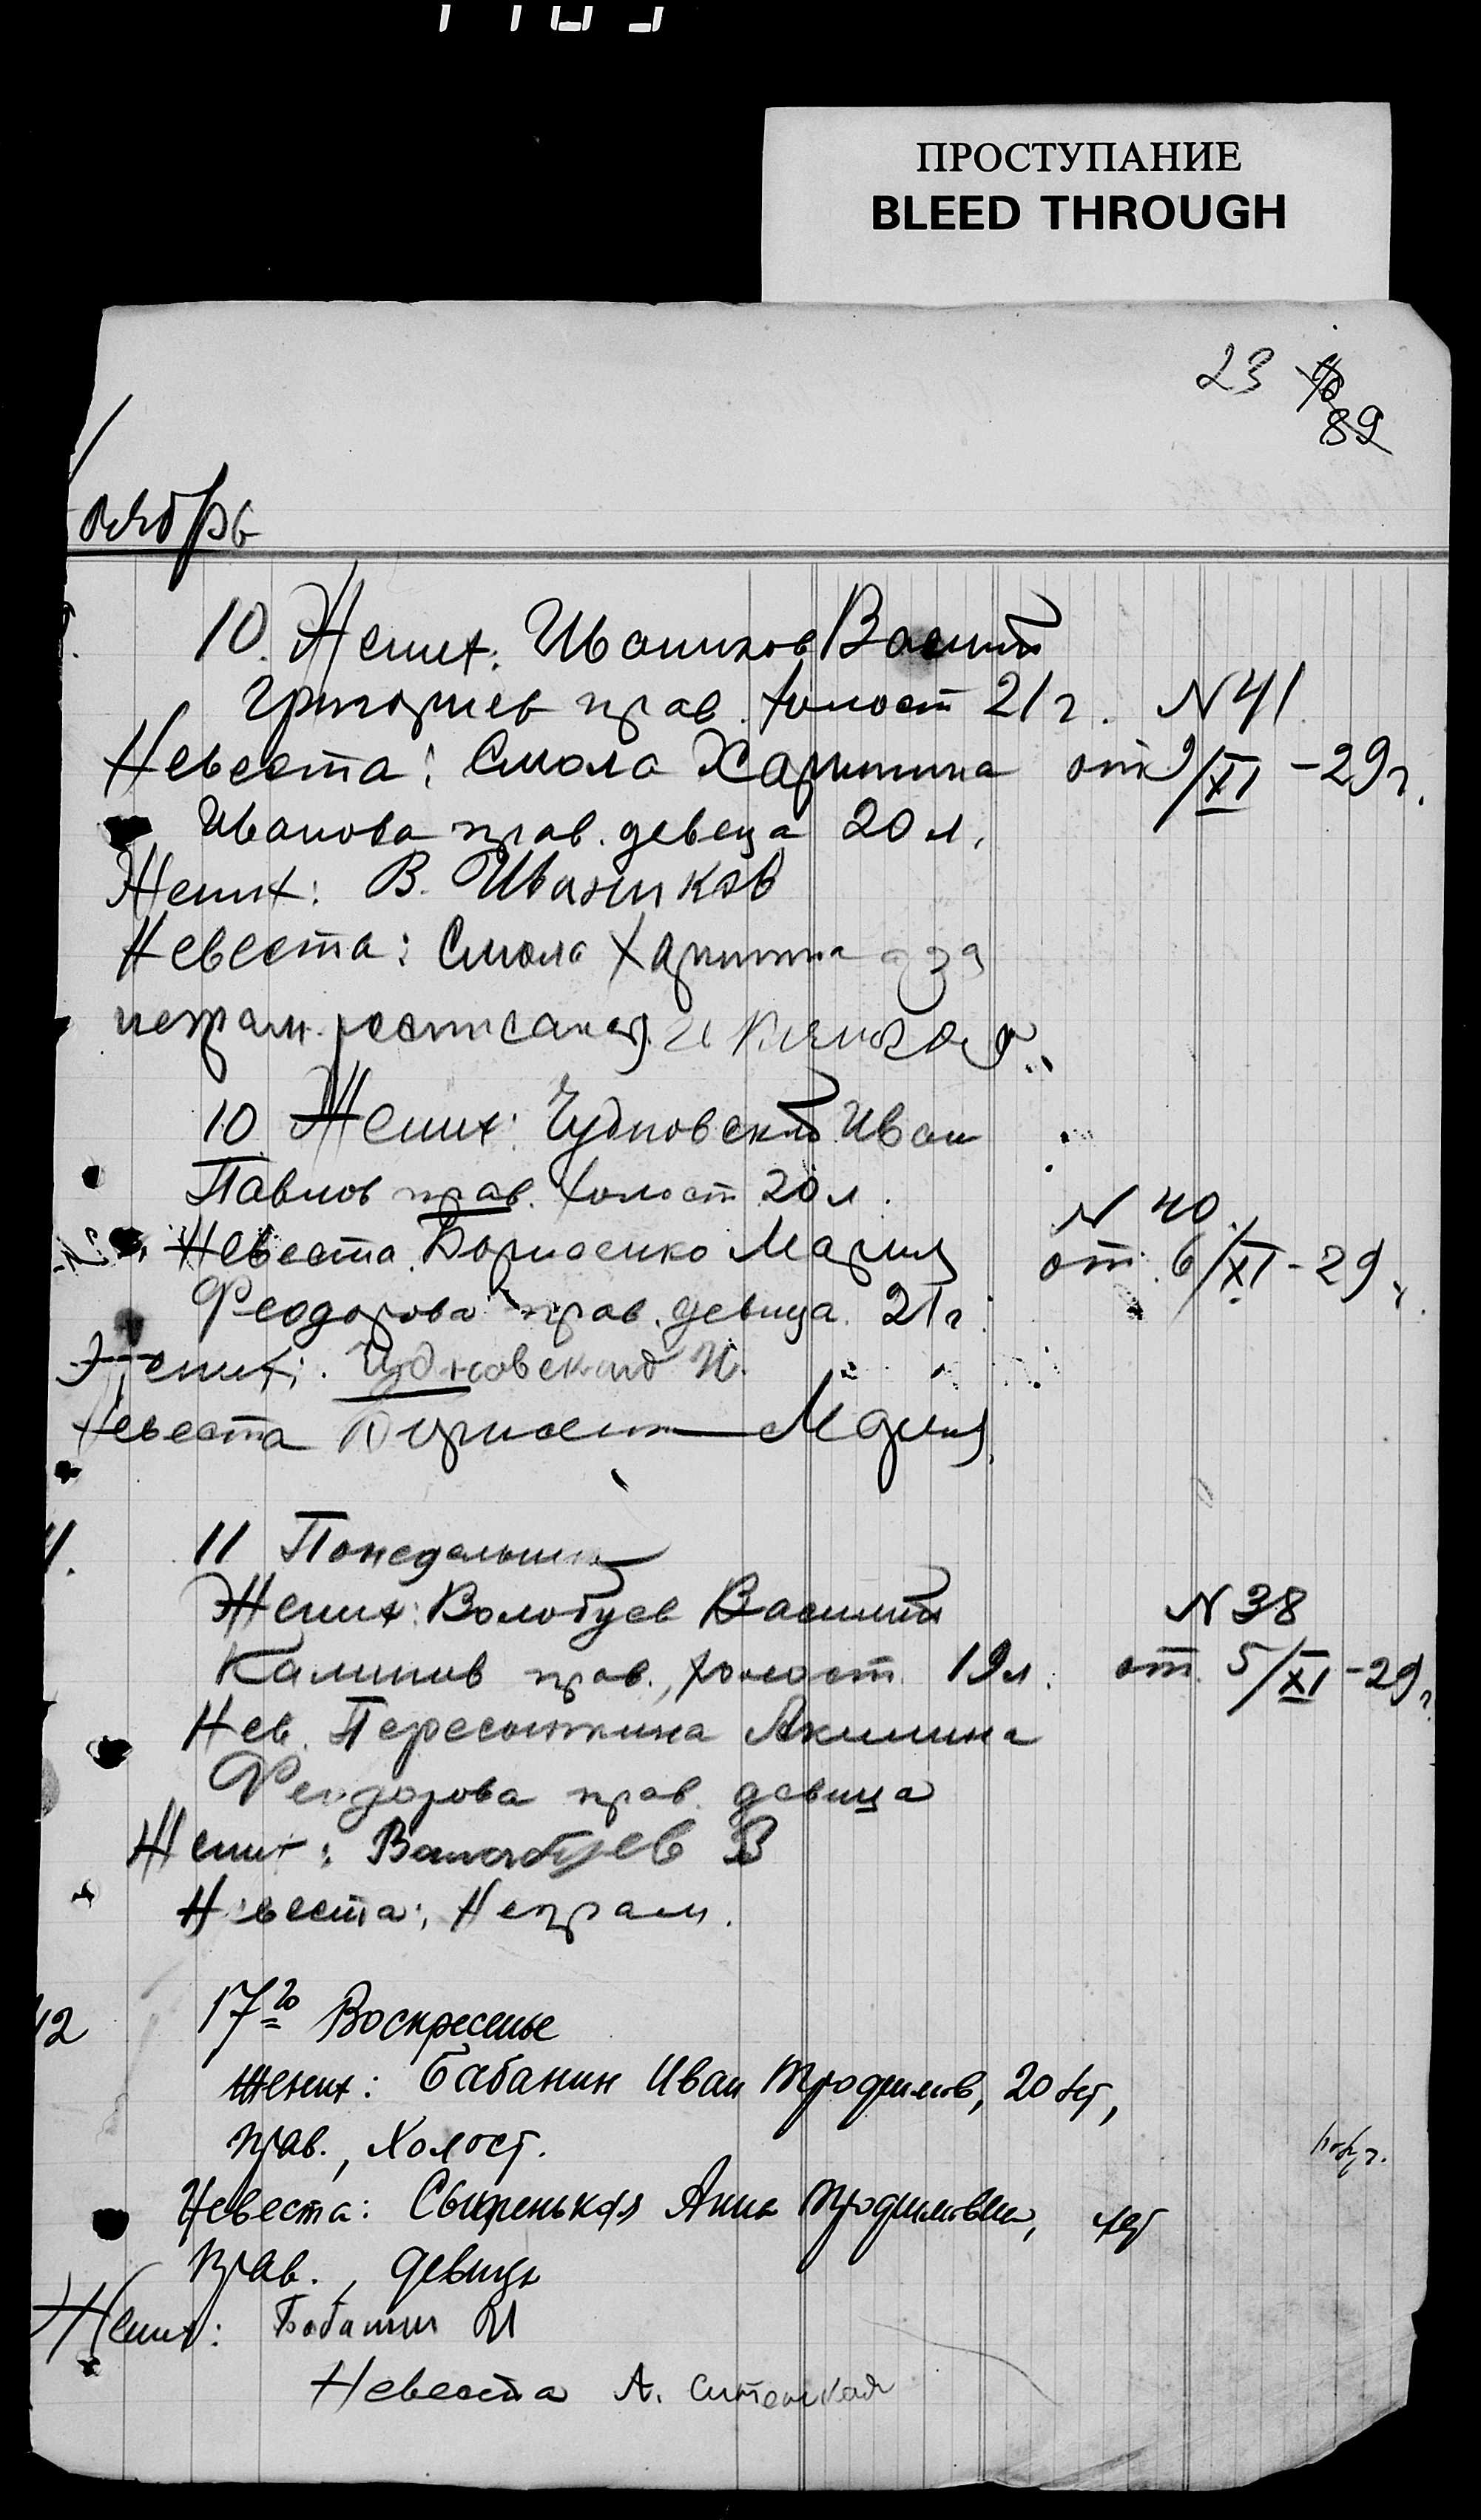 ПРОСТУПАНИЕ
BLEED THROUGH
23
89
10. Жених: Иваников Василий
Григориев прав. холост 21 г. N 41
Невеста: Смола Харитина от 9/XI - 29 г.
Иванова прав. девица 20 л.
Жених: В. Иваников
Невеста: Смола Харитина а за
неграм. росписался
10 Жених: Чудновский Иван
Павлов прав. холост 20 л.
N 40
Невеста. Борисенко Мария от 6/XI - 29 г.
Феодорова прав. девица. 21 г
Жених: Чудновский И.
Невеста Мария
11.
11 Понедельник
Жених: Волобуев Василий N 38
Калинов прав., холост 19 л. от 5/XI - 29 г.
Нев. Акилина
Феодорова прав. девица
Жених: В
Невеста: Неграм.
12
17го Воскресенье
Жених: Бабанин Иван Трофимов, 20 лет,
прав., холост.
Невеста: Анна Трофимовна, лет
прав., девица
Жених: Бабанин И
Невеста А.